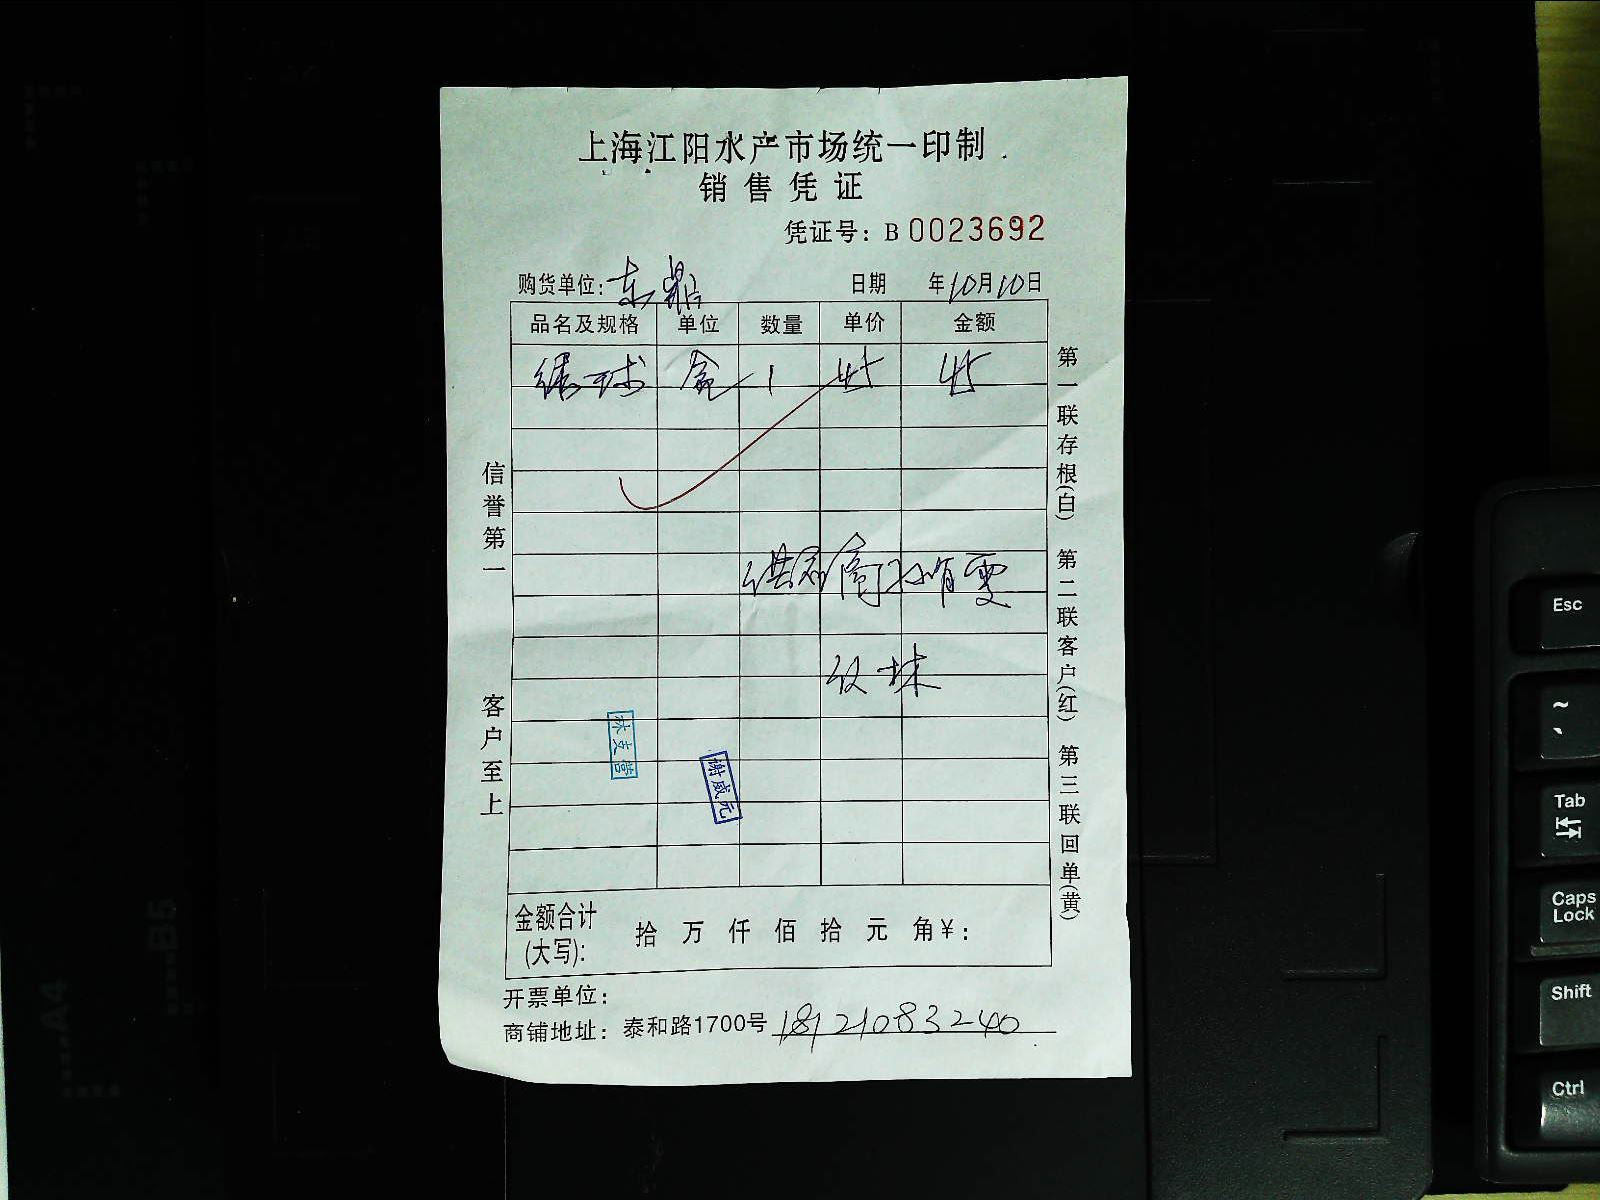 上海江阳水产市场统一印制
销售凭证
凭证号：B 0023692
购货单位：东鼎 日期 年10月10日
品名及规格 单位 数量 单价 金额
球 盒 1 45 45
供应商
信誉第一
客户至上
第一联存根(白) 第二联客户(红) 第三联回单(黄)
林支营
谢威元
金额合计(大写)： 拾 万 仟 佰 拾 元 角¥：
开票单位：
商铺地址：泰和路1700号 18121083240
B5
A4
Esc
~
`
Tab
Caps Lock
Shift
Ctrl